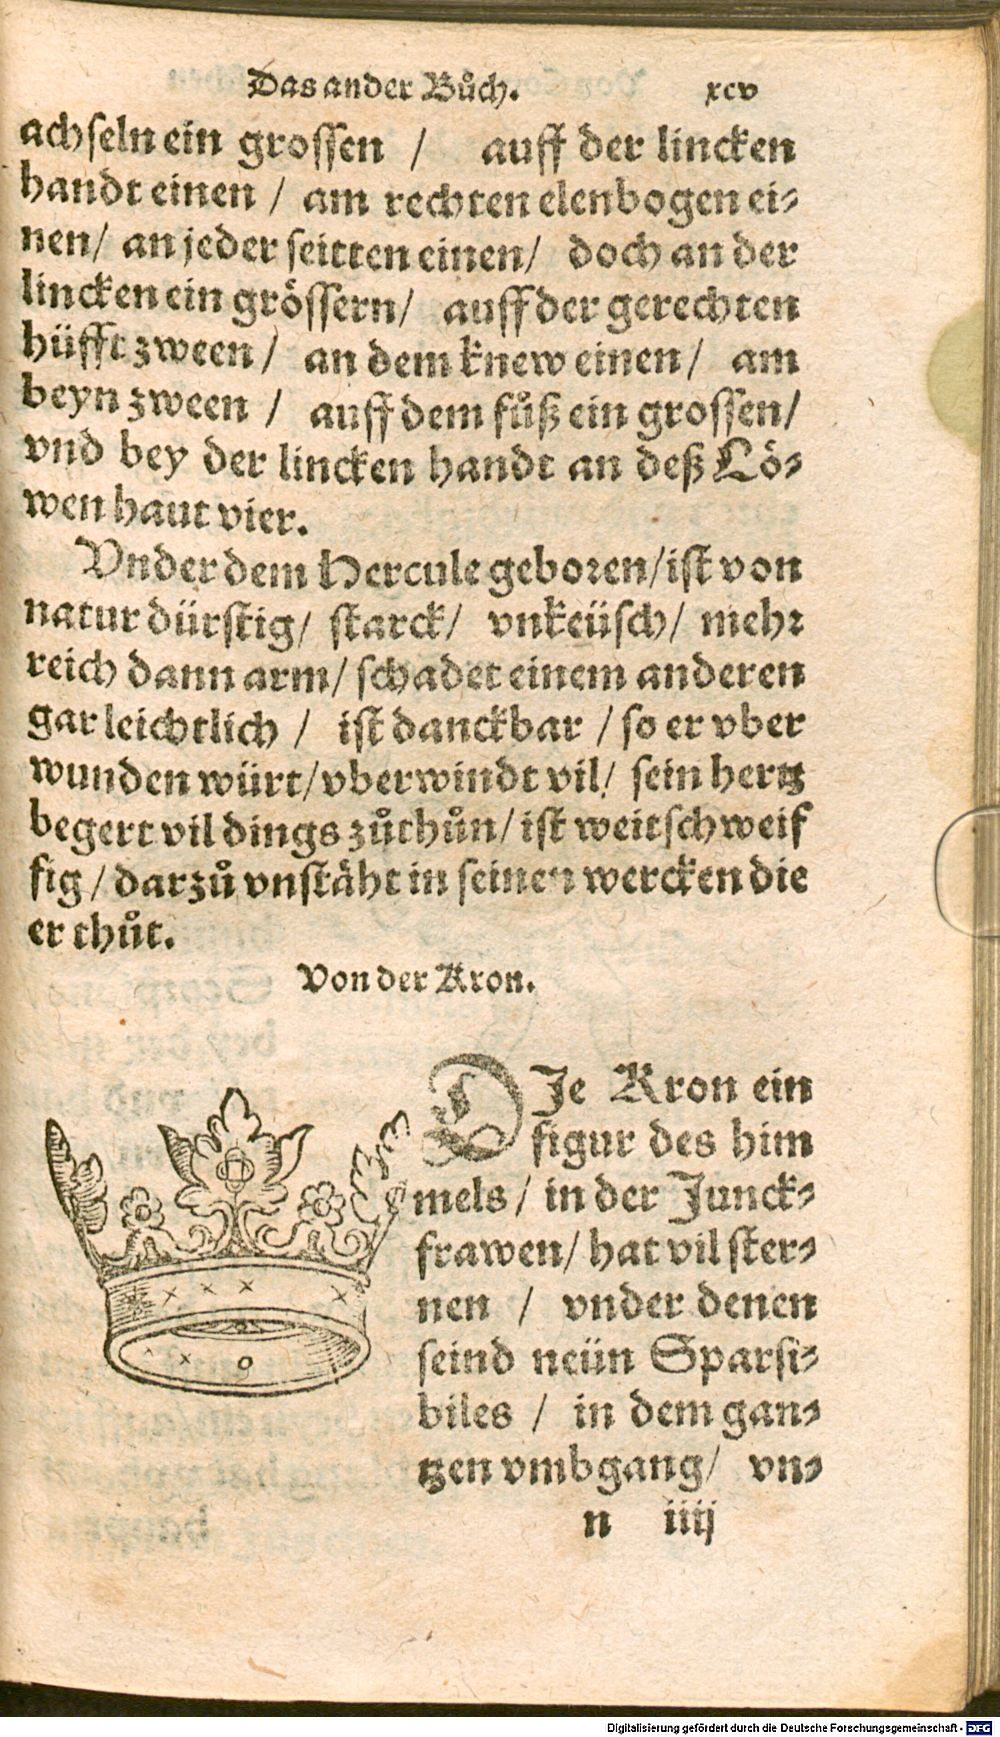 Das ander Bůch. xcv
achseln ein grossen / auff der lincken
handt einen / am rechten elenbogen ei⸗
nen / an jeder seitten einen / doch an der
lincken ein grössern / auff der gerechten
hüfft zween / an dem knew einen / am
beyn zween / auff dem fůß ein grossen /
vnd bey der lincken handt an deß Lö⸗
wen haut vier.
Vnder dem Hercule geboren / ist von
natur dürstig / starck / vnkeüsch / mehr
reich dann arm / schadet einem anderen
gar leichtlich / ist danckbar / so er vber
wunden würt / vberwindt vil / sein hertz
begert vil dings zůthůn / ist weitschweif
fig / darzů vnstäht in seinen wercken die
er thůt.
Von der Kron.
DJe Kron ein
figur des him
mels / in der Junck⸗
frawen / hat vil ster⸗
nen / vnder denen
seind neün Sparsi⸗
biles / in dem gan⸗
tzen vmbgang / vn⸗
9
n iiij
Digitalisierung gefördert durch die Deutsche Forschungsgemeinschaft - DFG